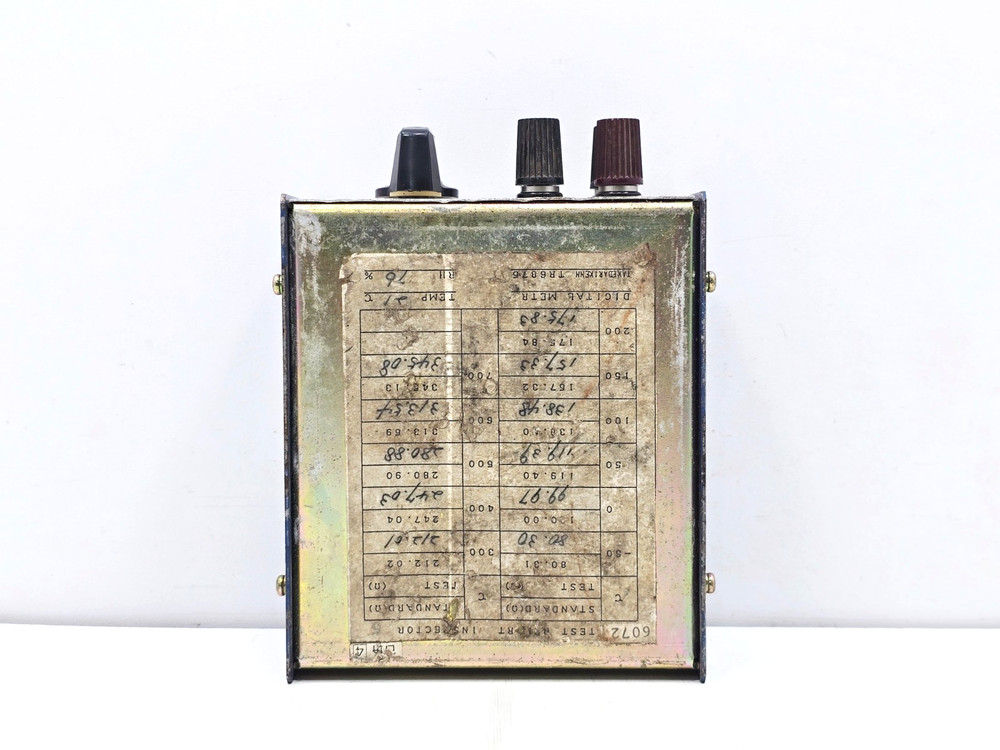 TEST REPORT INSPECTOR
STANDARD(Ω) STANDARD(Ω)
℃ ℃
TEST (Ω) TEST (Ω)
80.31 212.02
-50 300
80.30 212.01
100.00 247.04
0 400
99.97 247.03
119.40 280.90
50 500
119.39 280.88
138.50 313.59
100 600
138.48 313.54
157.32 345.13
150 700
157.33 345.08
175.84
200
175.83
DIGITAL METR TEMP 21 ℃
TAKEDARIKEN RH %